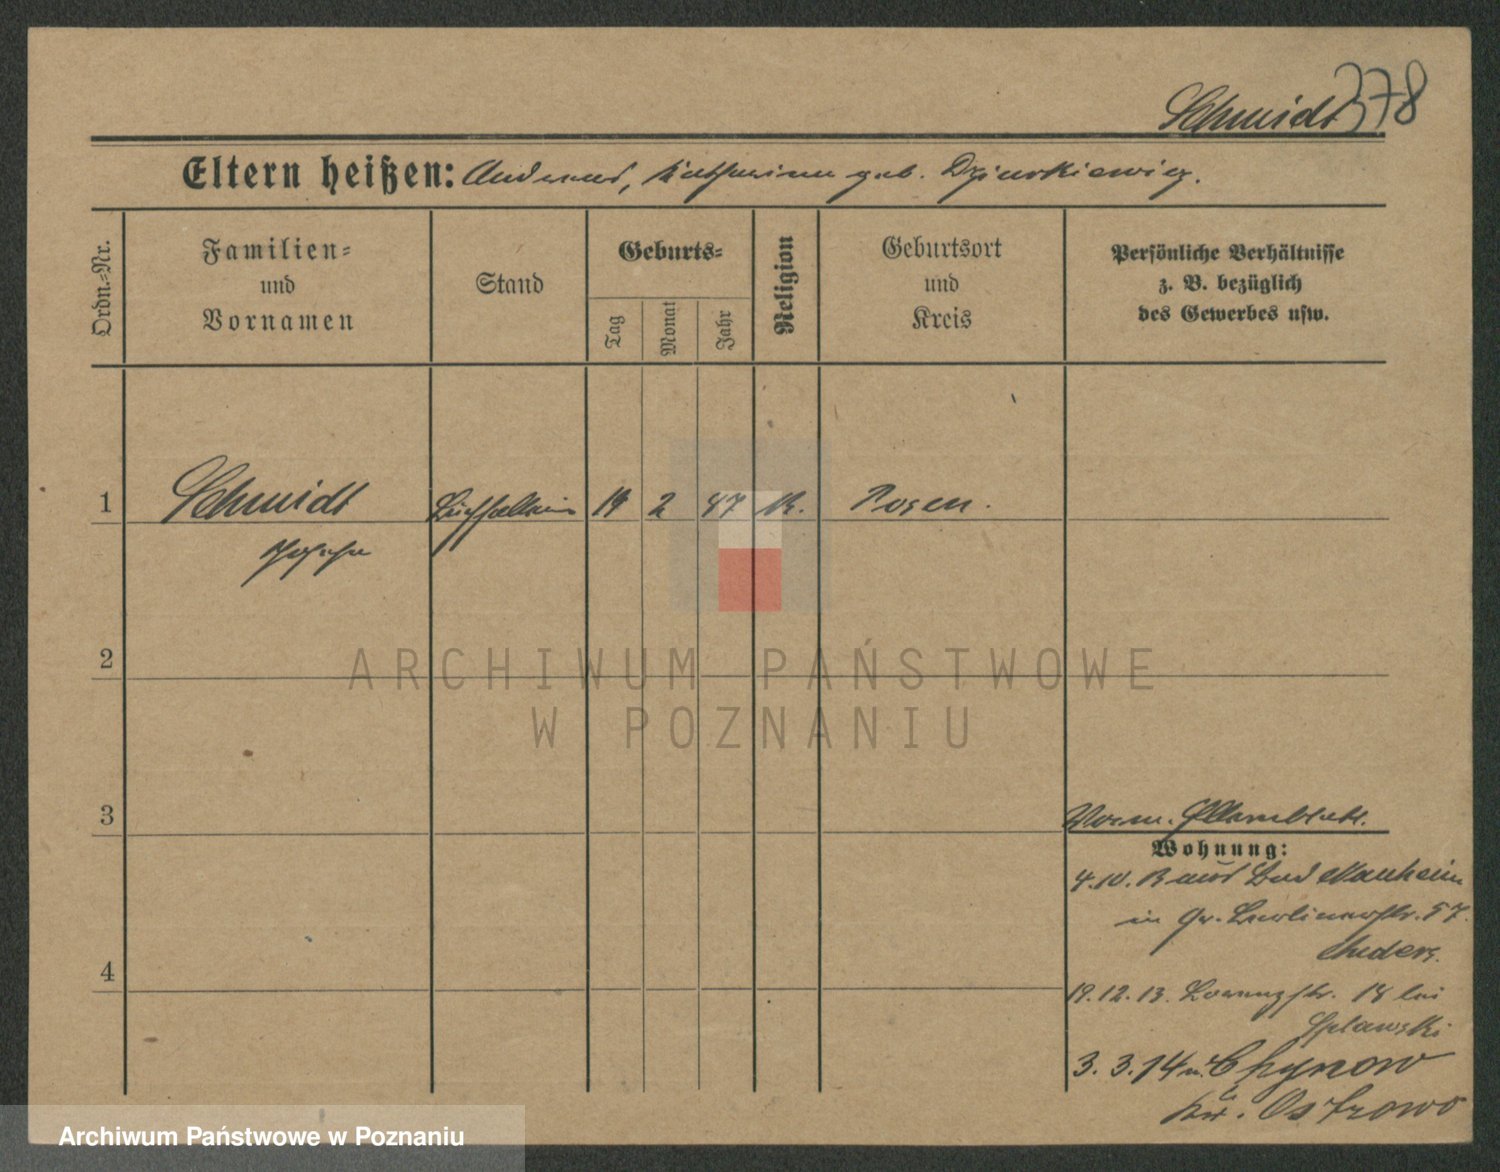 Schmidt 378
Eltern heißen: Andreas, Katharina geb. Dziurkiewicz.
Ordn.-Nr.
Familien-
und
Vornamen
Stand
Geburts-
Tag
Monat
Jahr
Religion
Geburtsort
und
Kreis
Persönliche Verhältnisse
z. B. bezüglich
des Gewerbes usw.
1 Schmidt 19 2 47 K. Posen.
2
3
4
ARCHIWUM PAŃSTWOWE
W POZNANIU
Wohnung:
4.10. Bad Nauheim
in Gr. Berlinerstr. 57.
19.12.13. 18 bei
Splawski
3. 3. 14 n. Chynow
Kr. Ostrowo
Archiwum Państwowe w Poznaniu